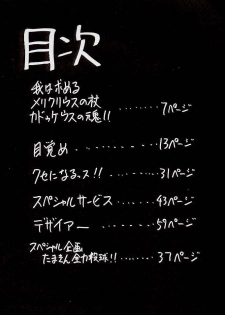 目次
我は求める
メリクリウスの杖
カドゥケウスの魂!! ........ 7ページ
目覚め ........ 13ページ
クセになるっス!! ........ 31ページ
スペシャルサービス ..... 43ページ
デザイアー ........ 59ページ
スペシャル企画
たまきん全力投球!! ....... 37ページ